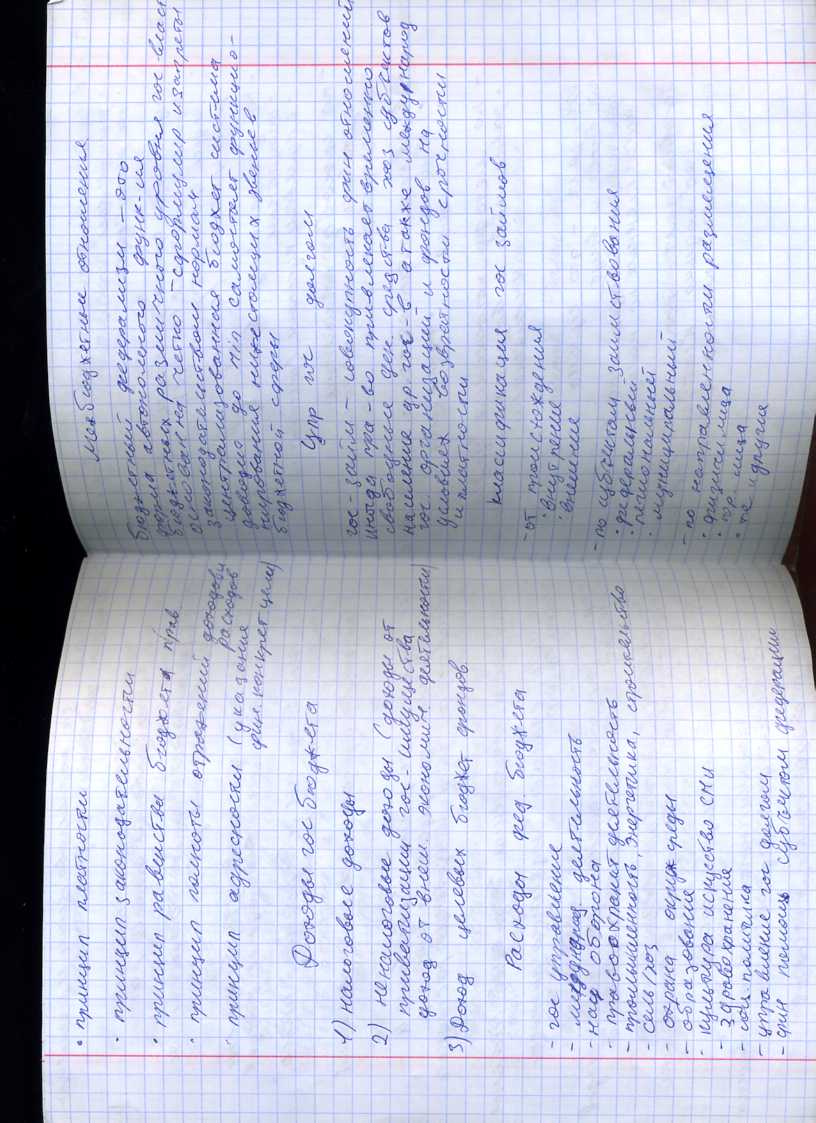 • принцип платности
• принцип законодательности
• принцип равенства бюджетн прав
• принцип полноты отражений доходов и расходов
• принцип адресности (указания фин. конкрет цели)
Доходы гос бюджета
1) налоговые доходы
2) неналоговые доходы (доходы от
приватизации гос-имущества
доход от внеш. экономич деятельности)
3) Доход целевых бюджет фондов
Расходы фед. бюджета
- гос управление
- междунар деятельность
- нац оборона
- правоохранит деятельность
- промышленность, энергетика, строительство
- сель/хоз
- охрана окруж среды
- образование
- культура искуство СМИ
- здравоохранение
- соц. политика
- управление гос долгом
- фин помощь субъектам федерации
Межбюджетные отношения
Бюджетный федерализм – это
форма автономного функ-ия
бюджетных различного уровня гос власт
основан на четко-сформулир изапреты
законодательством нормам
централизованная бюджет система
до самостоят функцио-
нирования нижестоящих звеньев
бюджетной сферы
Упр гос долгом
гос-займ – совокупность фин отношений
иногда пра-во привлекает временно
свободные ден средства хоз субъектов
населения др гос-в а также междунарoд
гос. организаций и фондов на
условиях возвратности срочности
и платности
Классификация гос займов
- от происхождения
• внутрение
• внешние
- по субъектам заимствования
• федеральный
• региональный
• муниципальный
- по направленности размещения
• физичи лица
• юр. лица
• те и другие